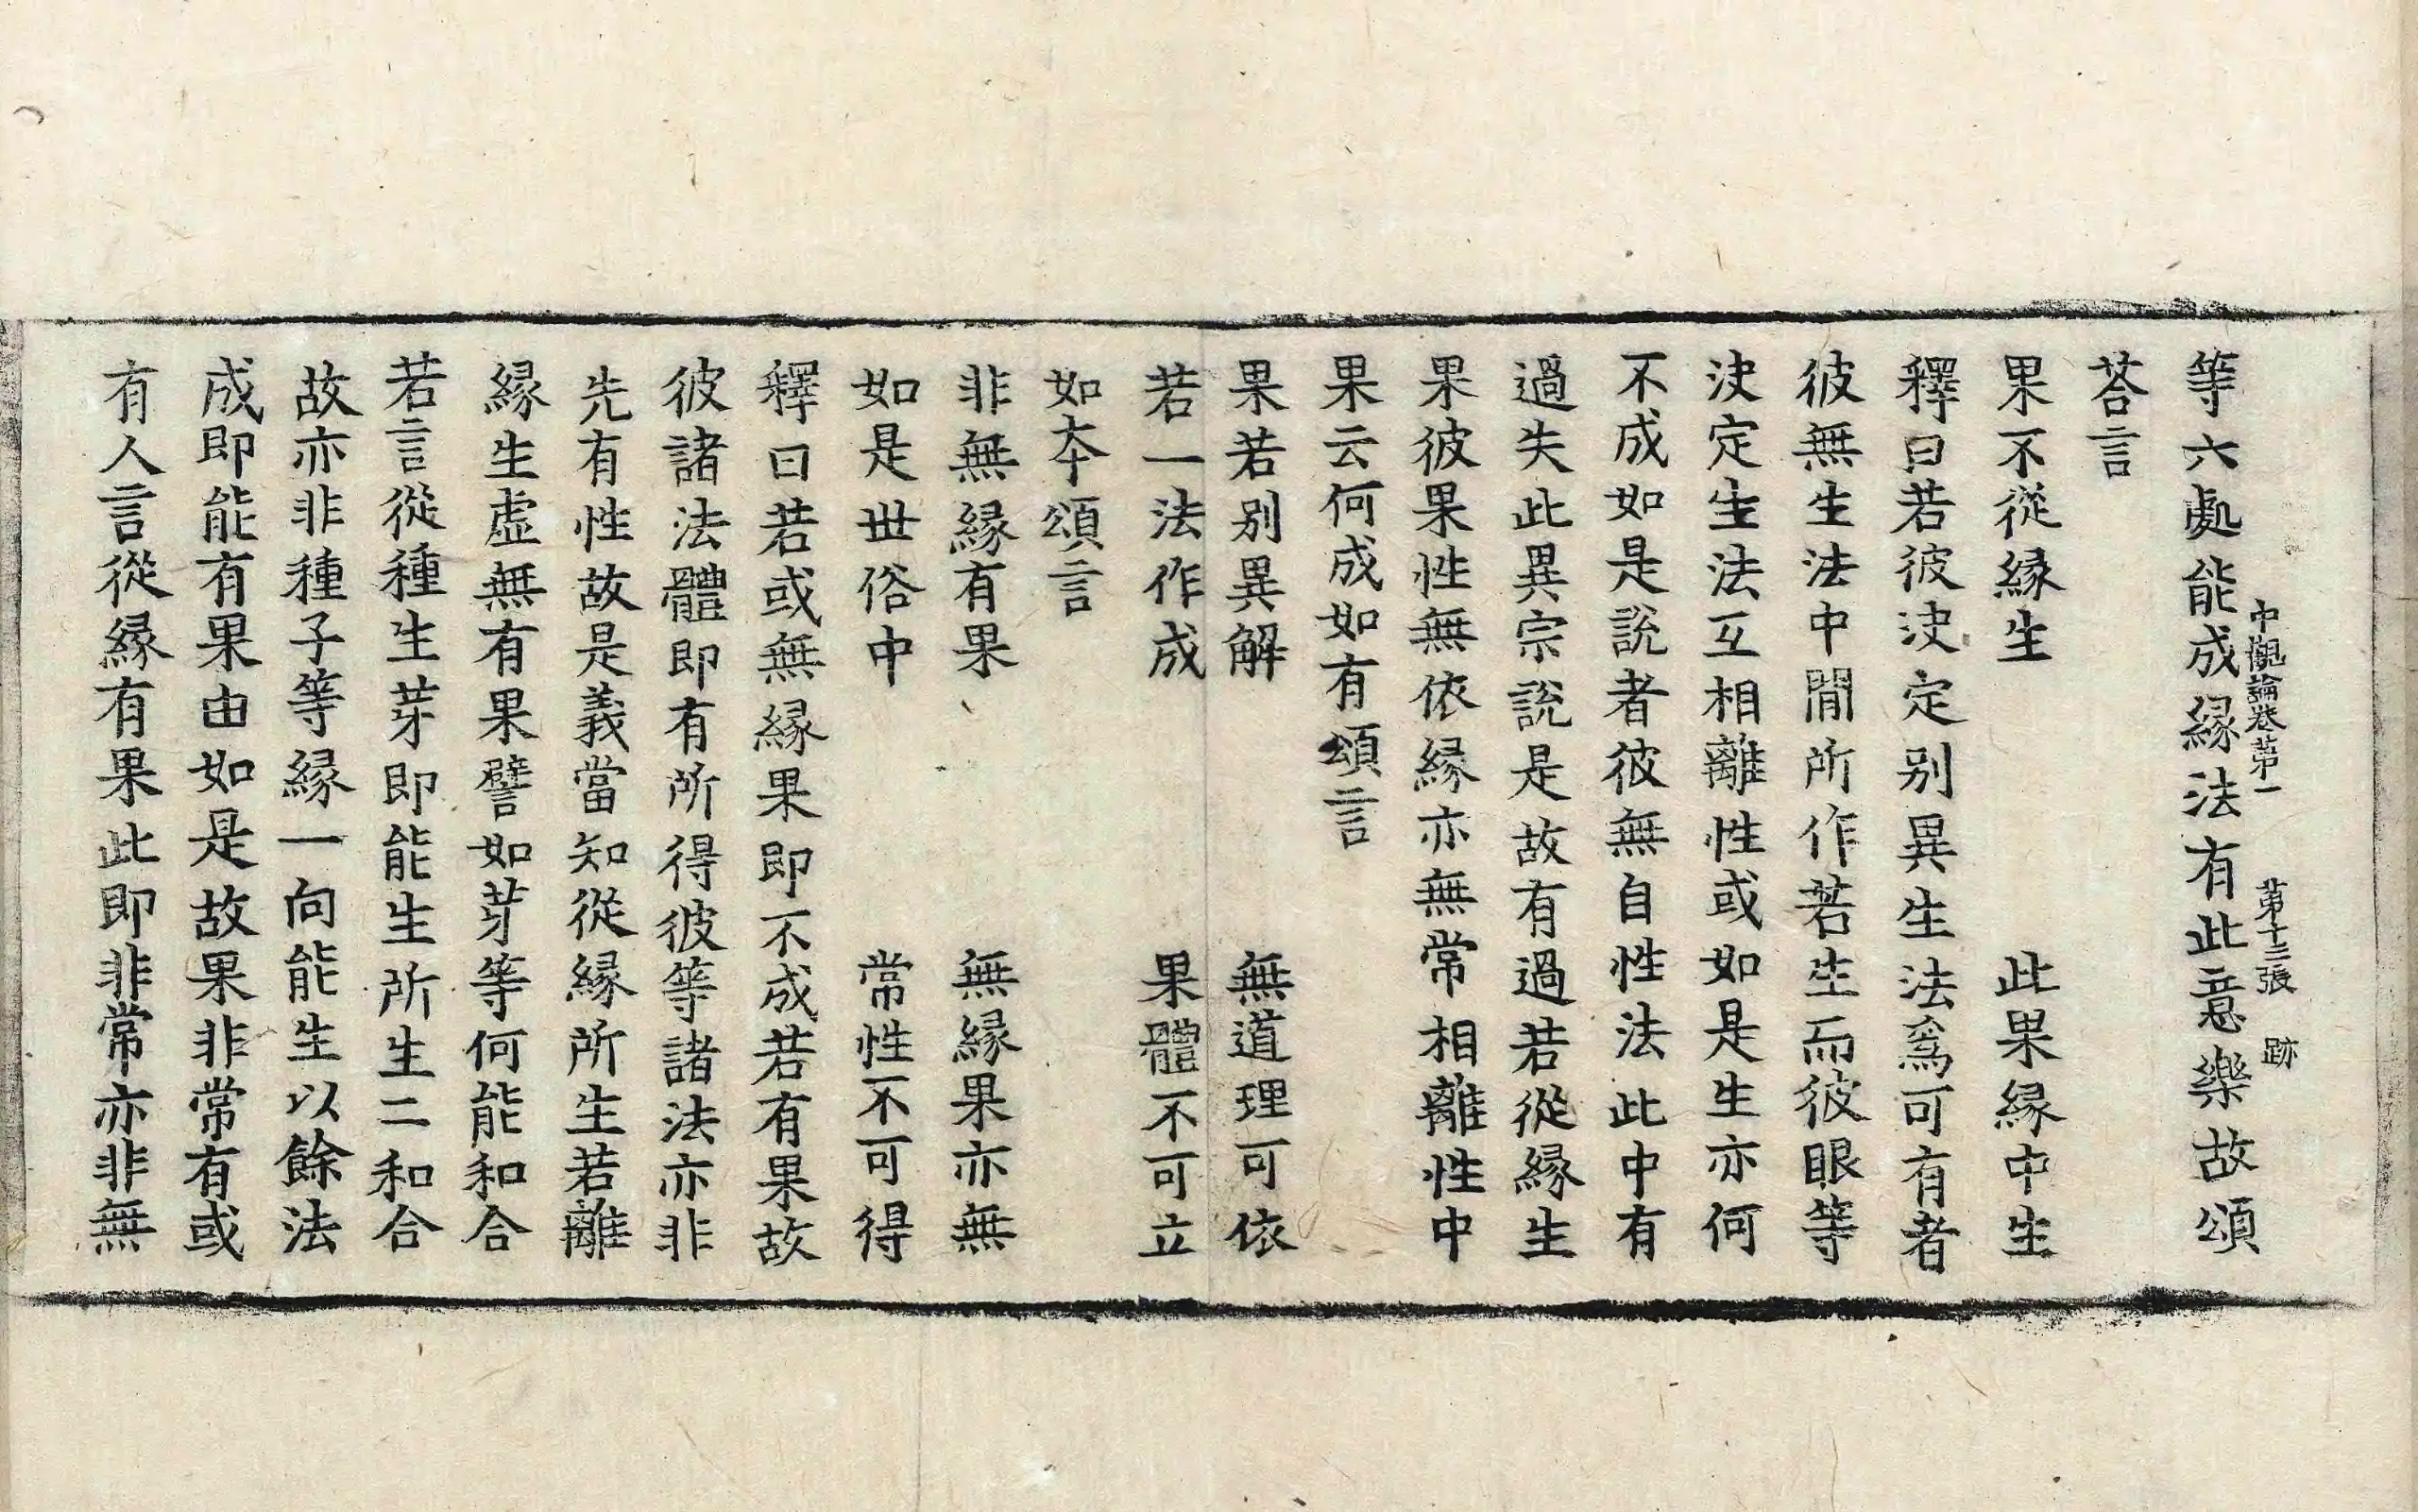 中觀論卷第一 第十三張 跡
等六處能成縁法有此意樂故頌
荅言
果不從縁生 此果縁中生
釋曰若彼决定别異生法爲可有者
彼無生法中間所作若生而彼眼等
决定生法互相離性或如是生亦何
不成如是說者彼無自性法此中有
過失此異宗說是故有過若從縁生
果彼果性無依縁亦無常相離性中
果云何成如有頌言
果若别異解 無道理可依
若一法作成 果體不可立
如本頌言
非無縁有果 無縁果亦無
如是世俗中 常性不可得
釋曰若或無縁果即不成若有果故
彼諸法體即有所得彼等諸法亦非
先有性故是義當知從縁所生若離
縁生虚無有果譬如芽等何能和合
若言從種生芽即能生所生二和合
故亦非種子等縁一向能生以餘法
成即能有果由如是故果非常有或
有人言從縁有果此即非常亦非無